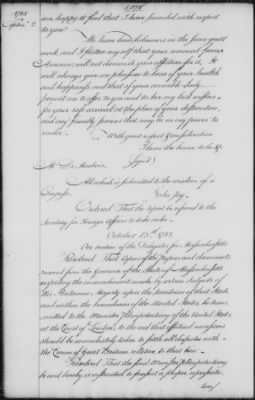 1785
am happy to find that I have succeeded with respect
to you
We have been tedious in the same great
work, and I flatter myself that your removal from
America, will not diminish your affection for it. It
will always give me pleasure to hear of your health
and happiness, and that of your amiable Lady.
Permit me to offer to you and to her my best wishes
for your safe arrival at the place of your destination,
and any friendly offices that may be in my power to
render.
With great respect & consideration
I have the honor to be &c
(signed)
Mr De Marbois.
All which is submitted to the wisdom of
Congress.
John Jay.
Ordered That the report be referred to the
Secretary for Foreign Affairs to take order.
October 13th 1785
On motion of the Delegates for Massachusetts
Resolved That Copies of the Papers and documents
received from the Governor of the State of Massachusetts
respecting the encroachments made by certain Subjects of
His Britannic Majesty upon the territories of that State,
and within the boundaries of the United States, be trans-
mitted to the Minister Plenipotentiary of the United States
at the Court of London, to the end that effectual measures
should be immediately taken to settle all disputes with
the Crown of Great Britain relative to that line.
Resolved That the said Minister Plenipotentiary
be and hereby is instructed to present a proper